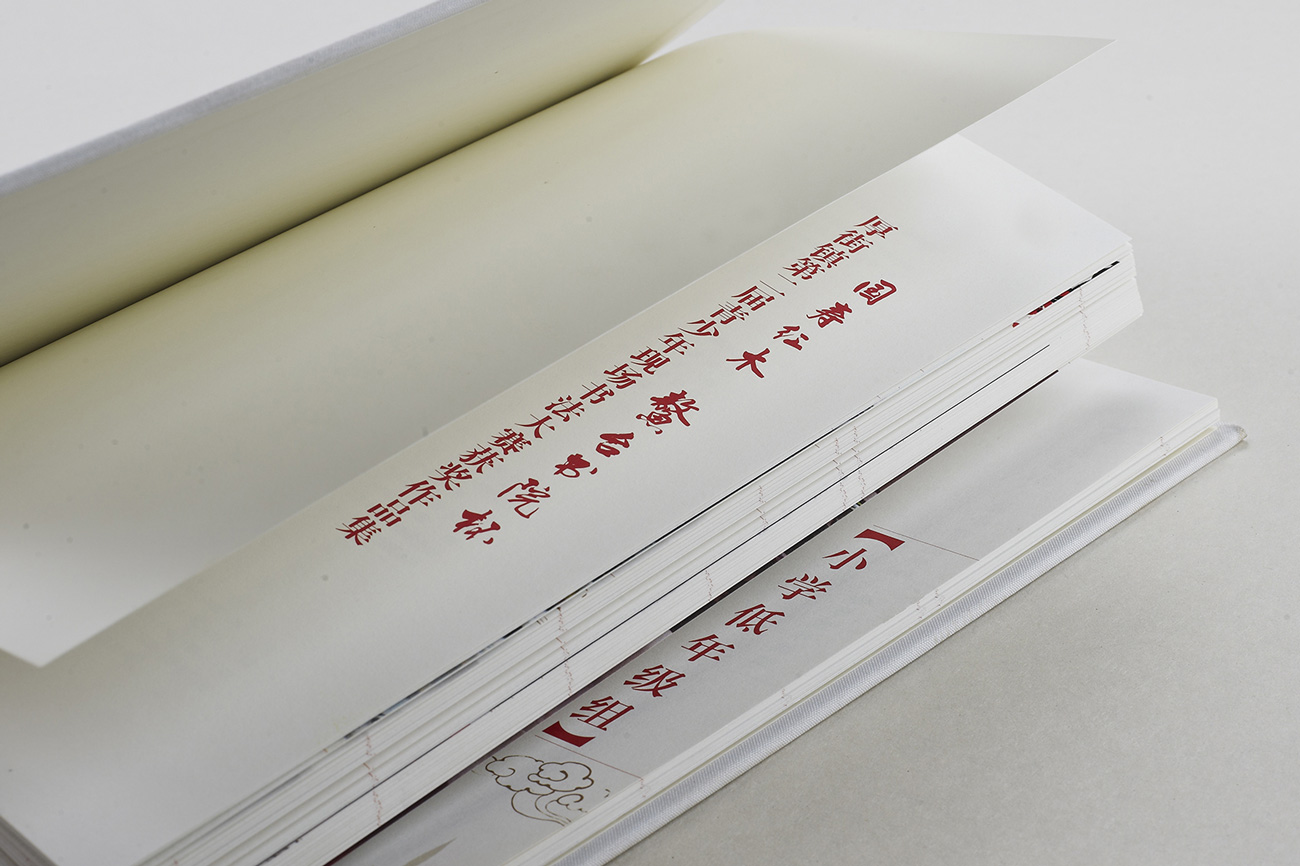 国寿红木 鳌台书院杯
厚街镇第二届青少年现场书法大赛获奖作品集
【小学低年级组】